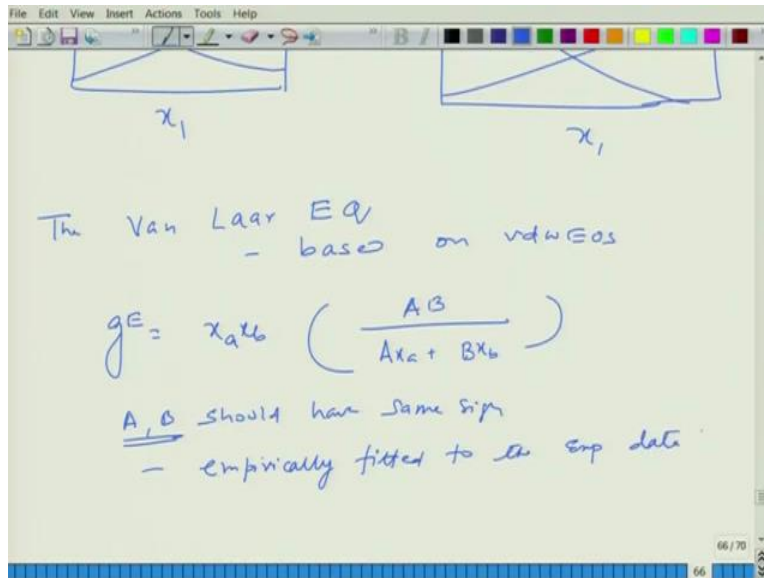 File Edit View Insert Actions Tools Help
x₁ x₁
The Van Laar EQ
- based on vdwEOS
gᴱ = xₐx_b ( AB / Axₐ + Bx_b )
A, B should have same sign
- empirically fitted to the exp data
66/70
66